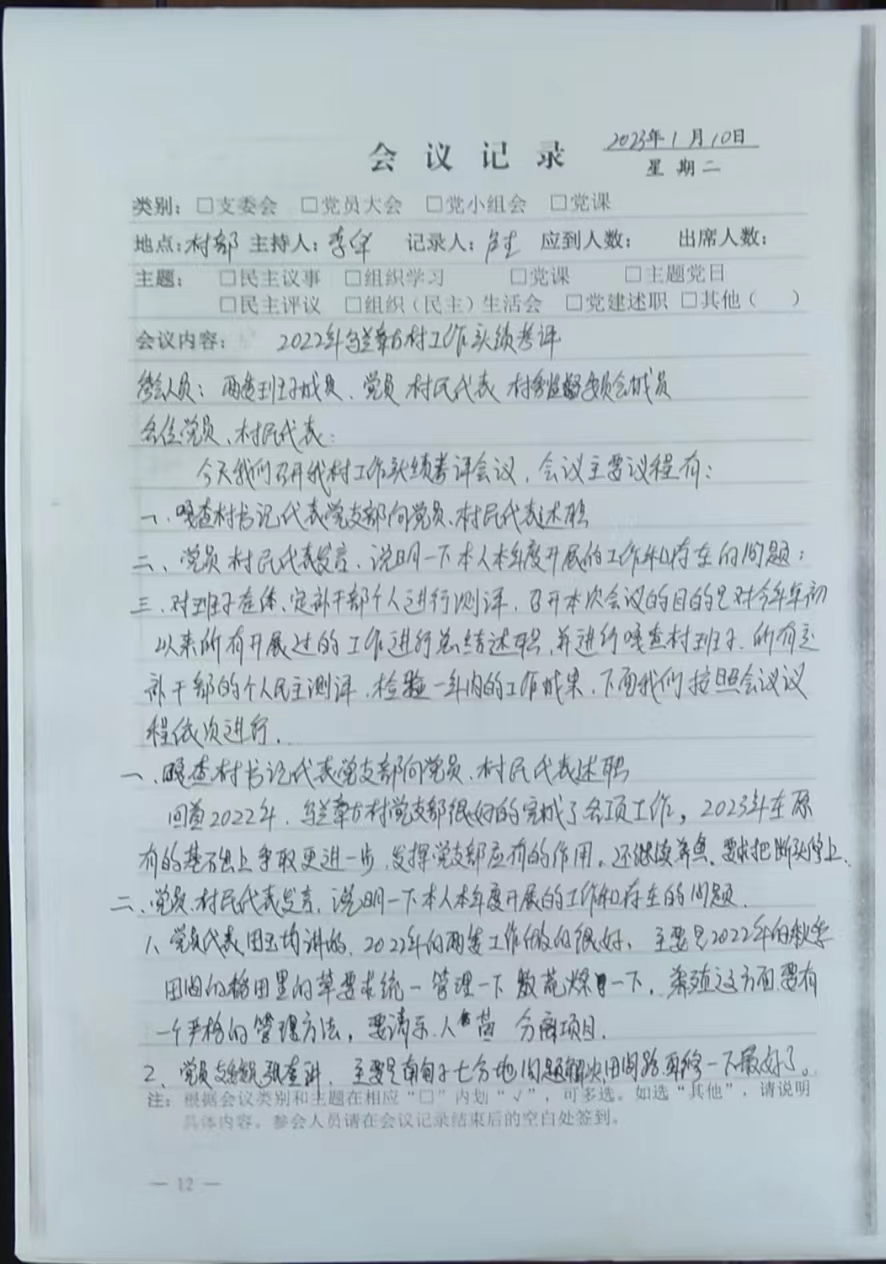 2023年1月10日
会议记录
星期二
类别：□支委会 □党员大会 □党小组会 □党课
地点：村部 主持人：李华 记录人： 应到人数： 出席人数：
主题： □民主议事 □组织学习 □党课 □主题党日
□民主评议 □组织（民主）生活会 □党建述职 □其他（ ）
会议内容： 2022年乌兰奉方村工作实绩考评
参会人员：两委班子成员、党员 村民代表 村务监督委员会成员
各位党员、村民代表：
今天我们召开我村工作实绩考评会议，会议主要议程有：
一、嘎查村书记代表党支部向党员、村民代表述职
二、党员 村民代表发言，说明一下本人本年度开展的工作和存在的问题；
三、对班子在体、定补干部个人进行测评，召开本次会议的目的是对今年年初
以来所有开展过的工作进行总结述职，并进行嘎查村班子，所有定
补干部的个人民主测评，检验一年内的工作成果，下面我们按照会议议
程依次进行.
一、嘎查村书记代表党支部向党员、村民代表述职
回首2022年，乌兰奉方村党支部很好的完成了各项工作，2023年在原
有的基础上争取更进一步，发挥党支部应有的作用。还继续 要求把断头 上、
二、党员、村民代表发言，说明一下本人本年度开展的工作和存在的问题.
1、党员代表田玉均讲的，2022年的两委工作做的很好，主要是2022年的秋季
田间的稻田里的草要求统一管理一下 一下，养殖这方面要有
一个严格的管理方法，要请示人畜 分离项目.
2、党员 张奎讲，主要是南甸子七分地问题解决田间路再修一下最好了。
注：根据会议类别和主题在相应“□”内划“√”，可多选。如选“其他”，请说明
具体内容。参会人员请在会议记录结束后的空白处签到。
— 12 —